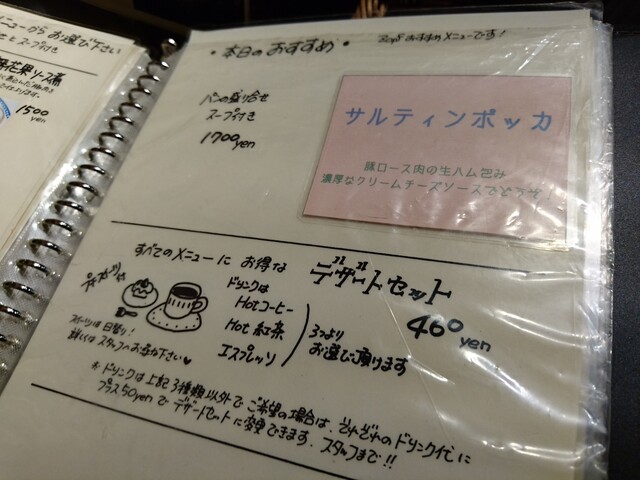 ニューから お選び下さい
スープ付き
1500
yen
・本日の おすすめ・
おすすめメニューです!
パンの盛り合せ
スープ付き
1700yen
サルティンボッカ
豚ロース肉の生ハム包み
濃厚なクリームチーズソースでどうぞ!
すべてのメニューに お得な
デザートセット
460yen
ドリンクは
Hotコーヒー
Hot 紅茶
エスプレッソ
3つより
お選び頂けます
スイーツは日替り!
詳しくはスタッフへお尋ね下さい♥
※ドリンクは上記3種類以外でご希望の場合は、それぞれのドリンク代に
プラス50yenでデザートセットに変更できます。スタッフまで!!